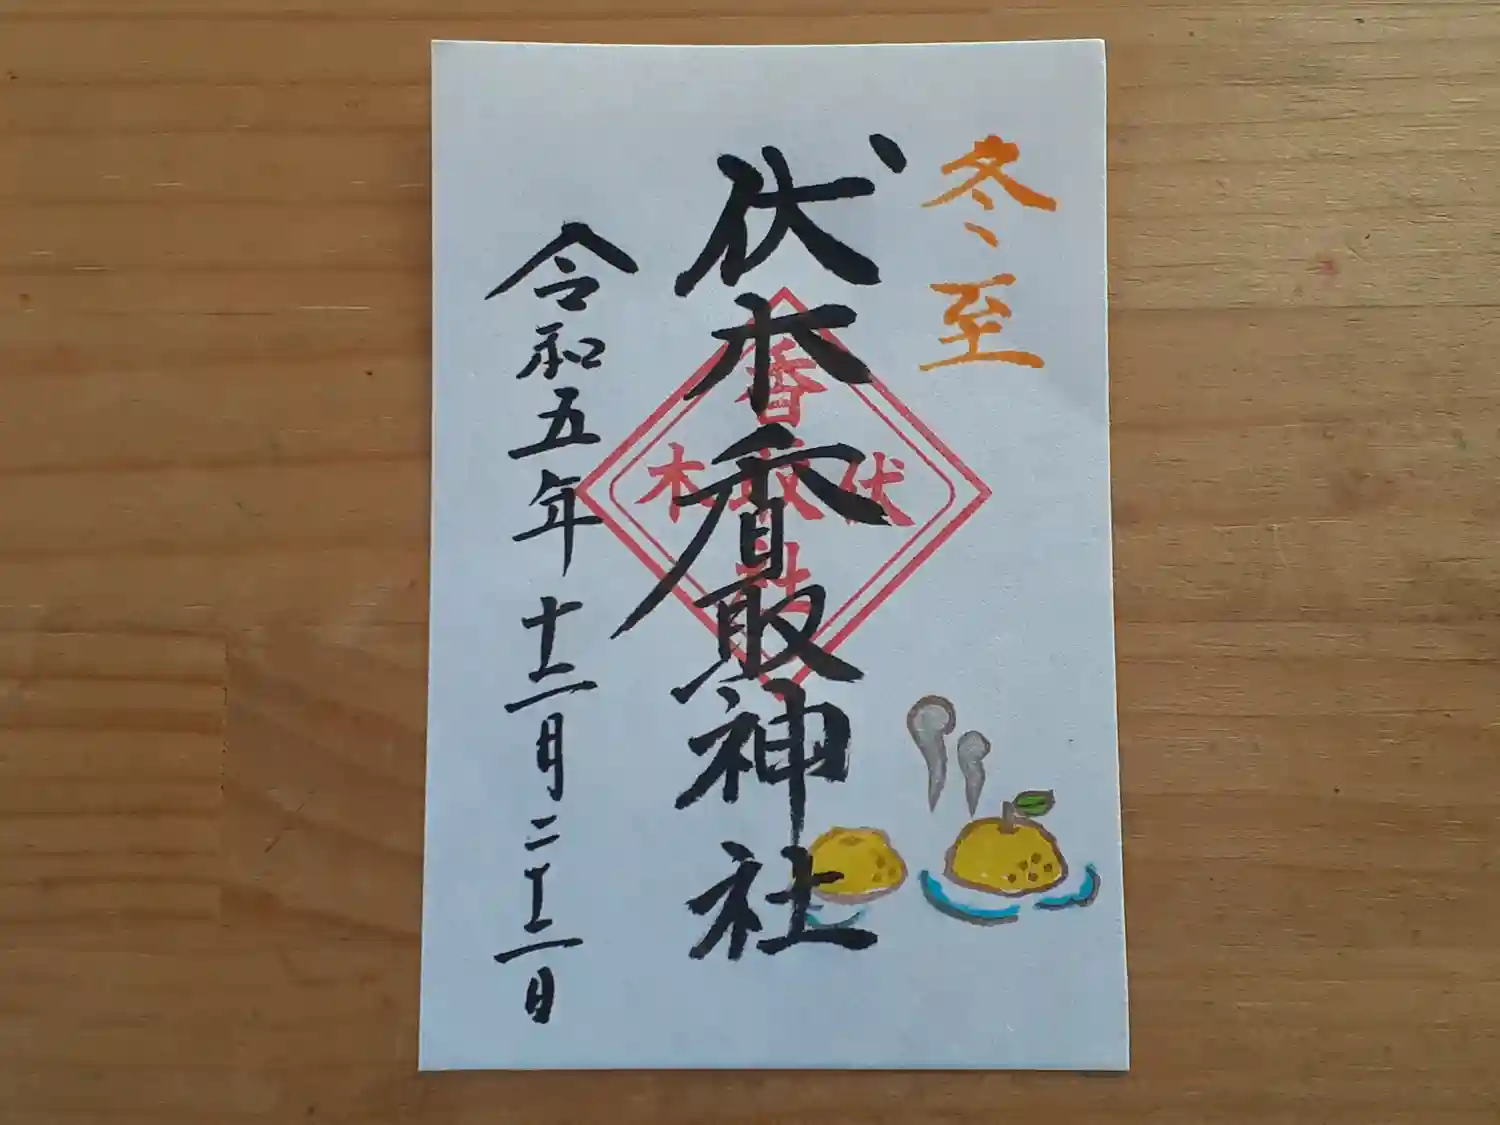 冬至
伏木香取神社
令和五年十二月二十二日
伏木
香取